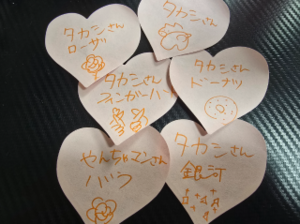 タカシさん
ローザ
タカシさん
タカシさん
フィンガーハート
タカシさん
ドーナツ
やんちゃマンさん
タカシさん
銀河